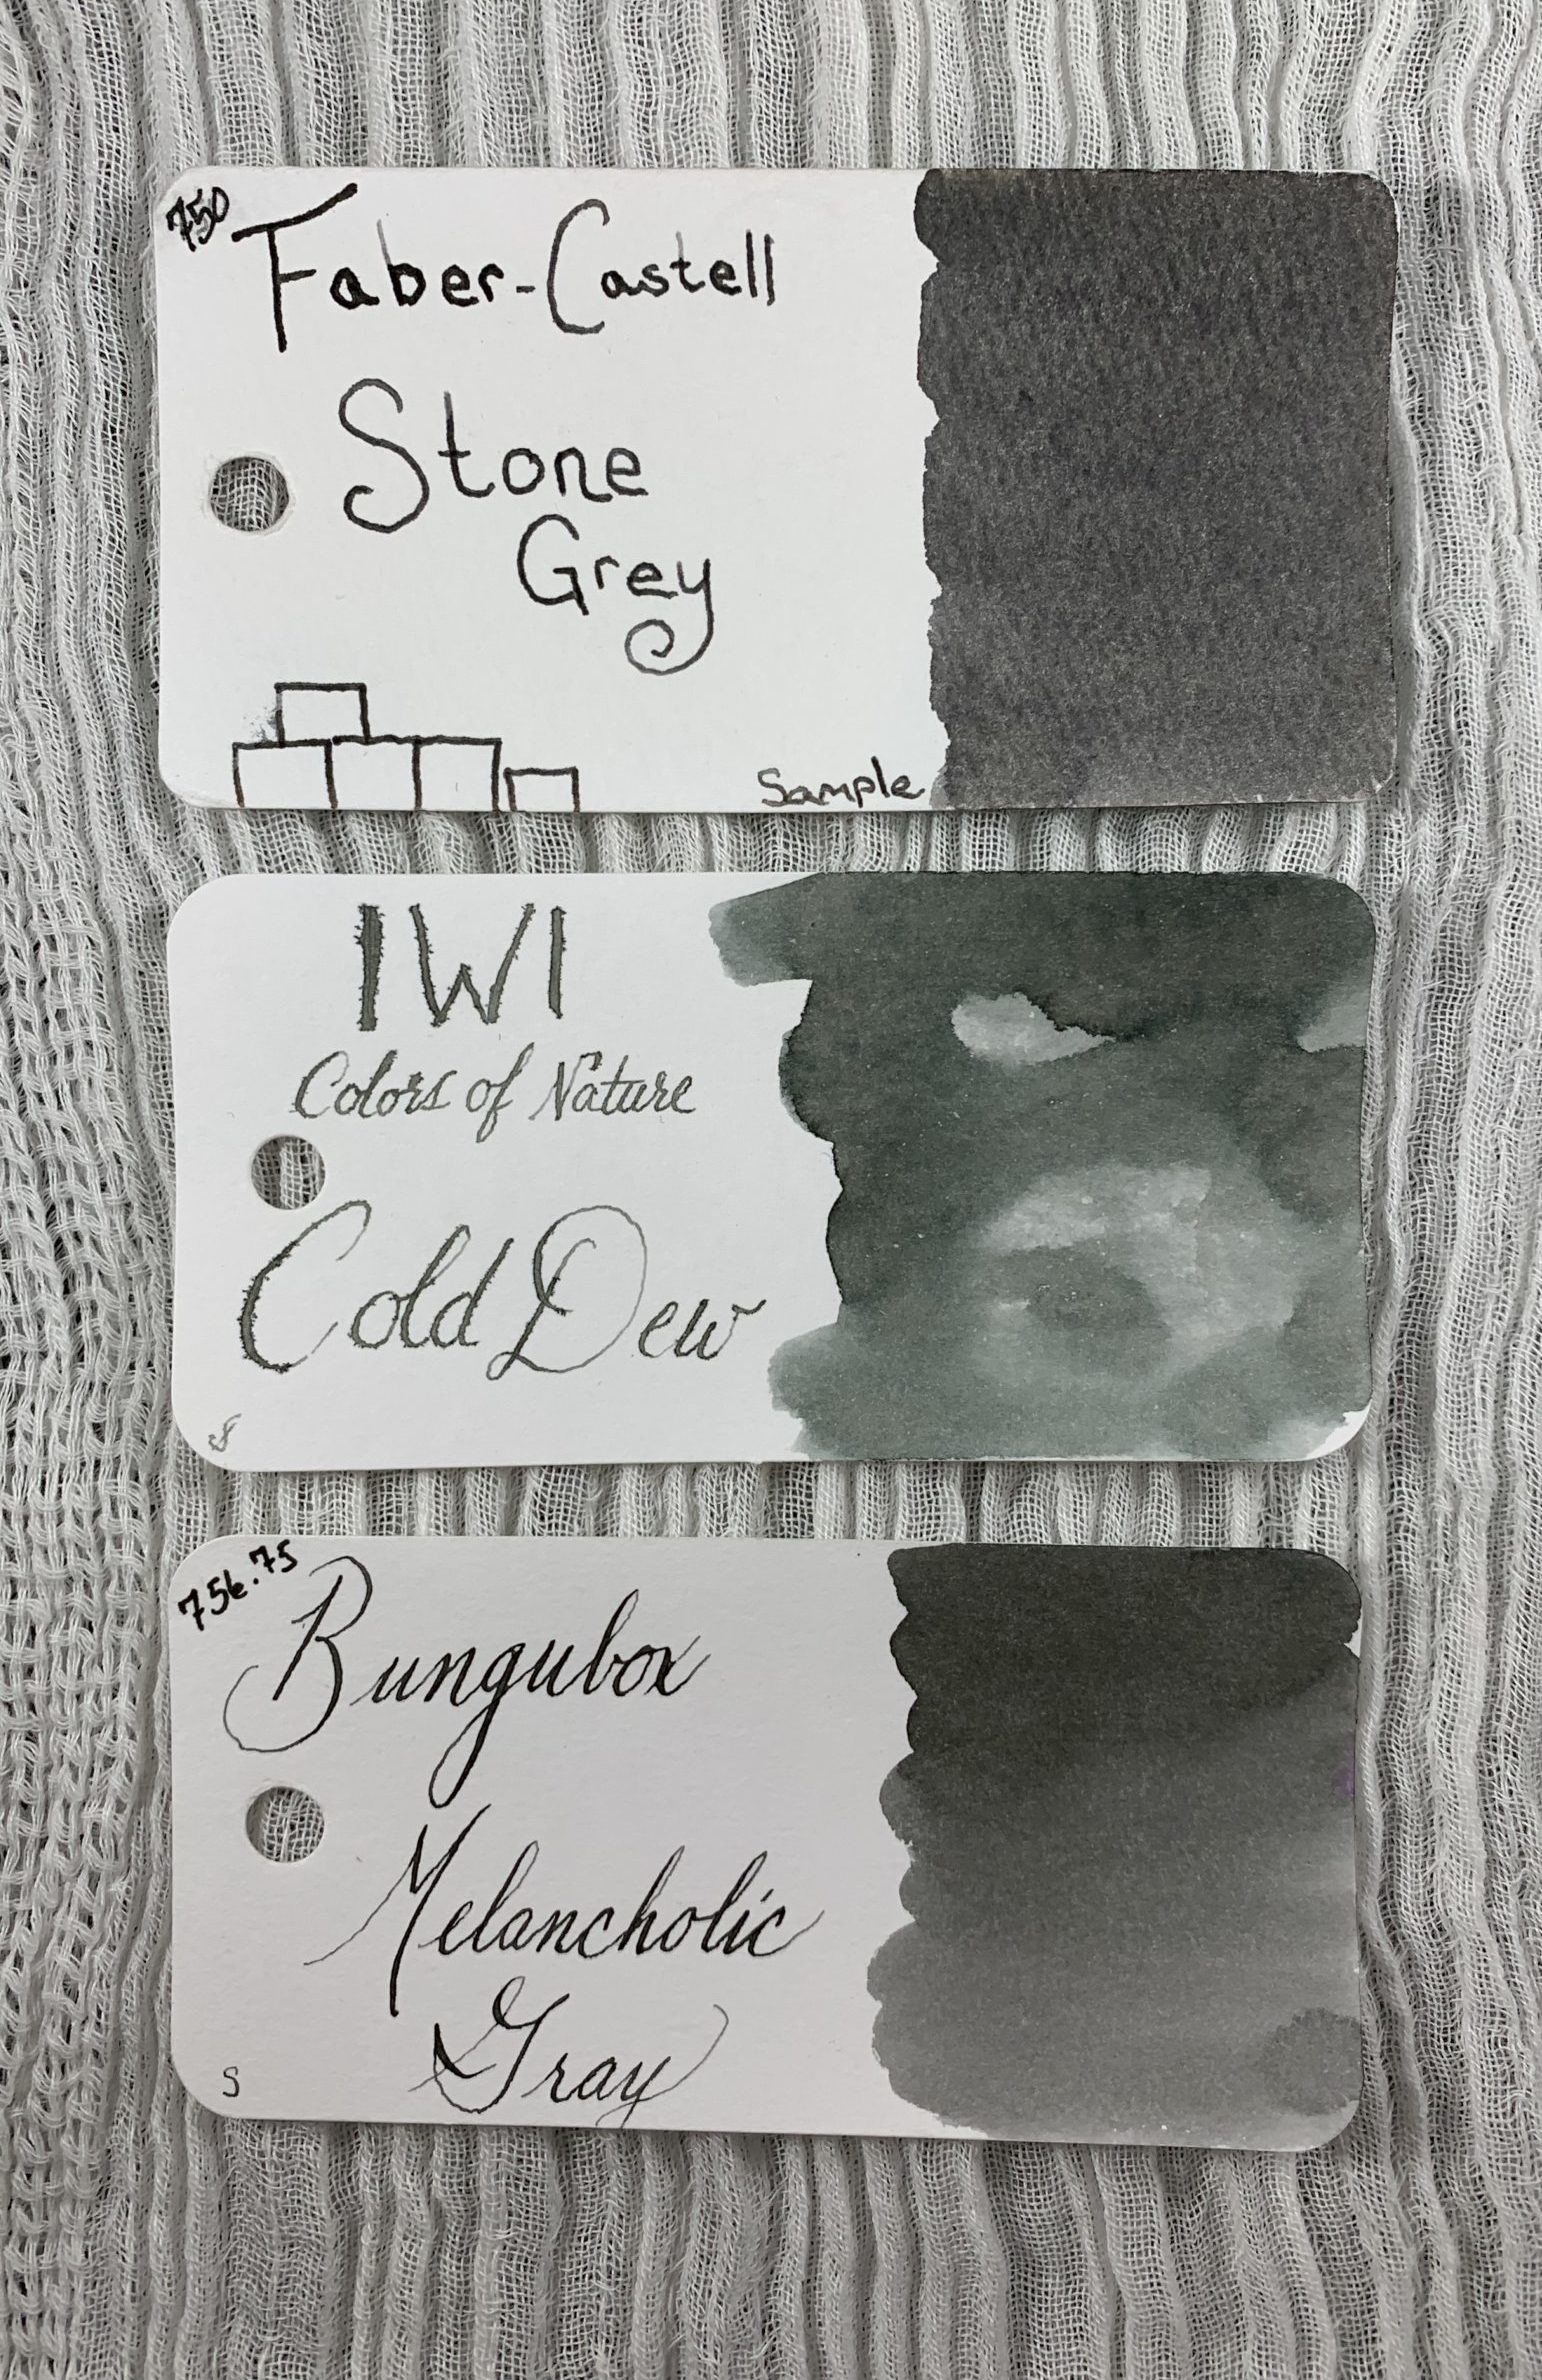 750
Faber-Castell
Stone
Grey
Sample
IWI
Colors of Nature
Cold Dew
756.75
Bungubox
Melancholic
Gray
S